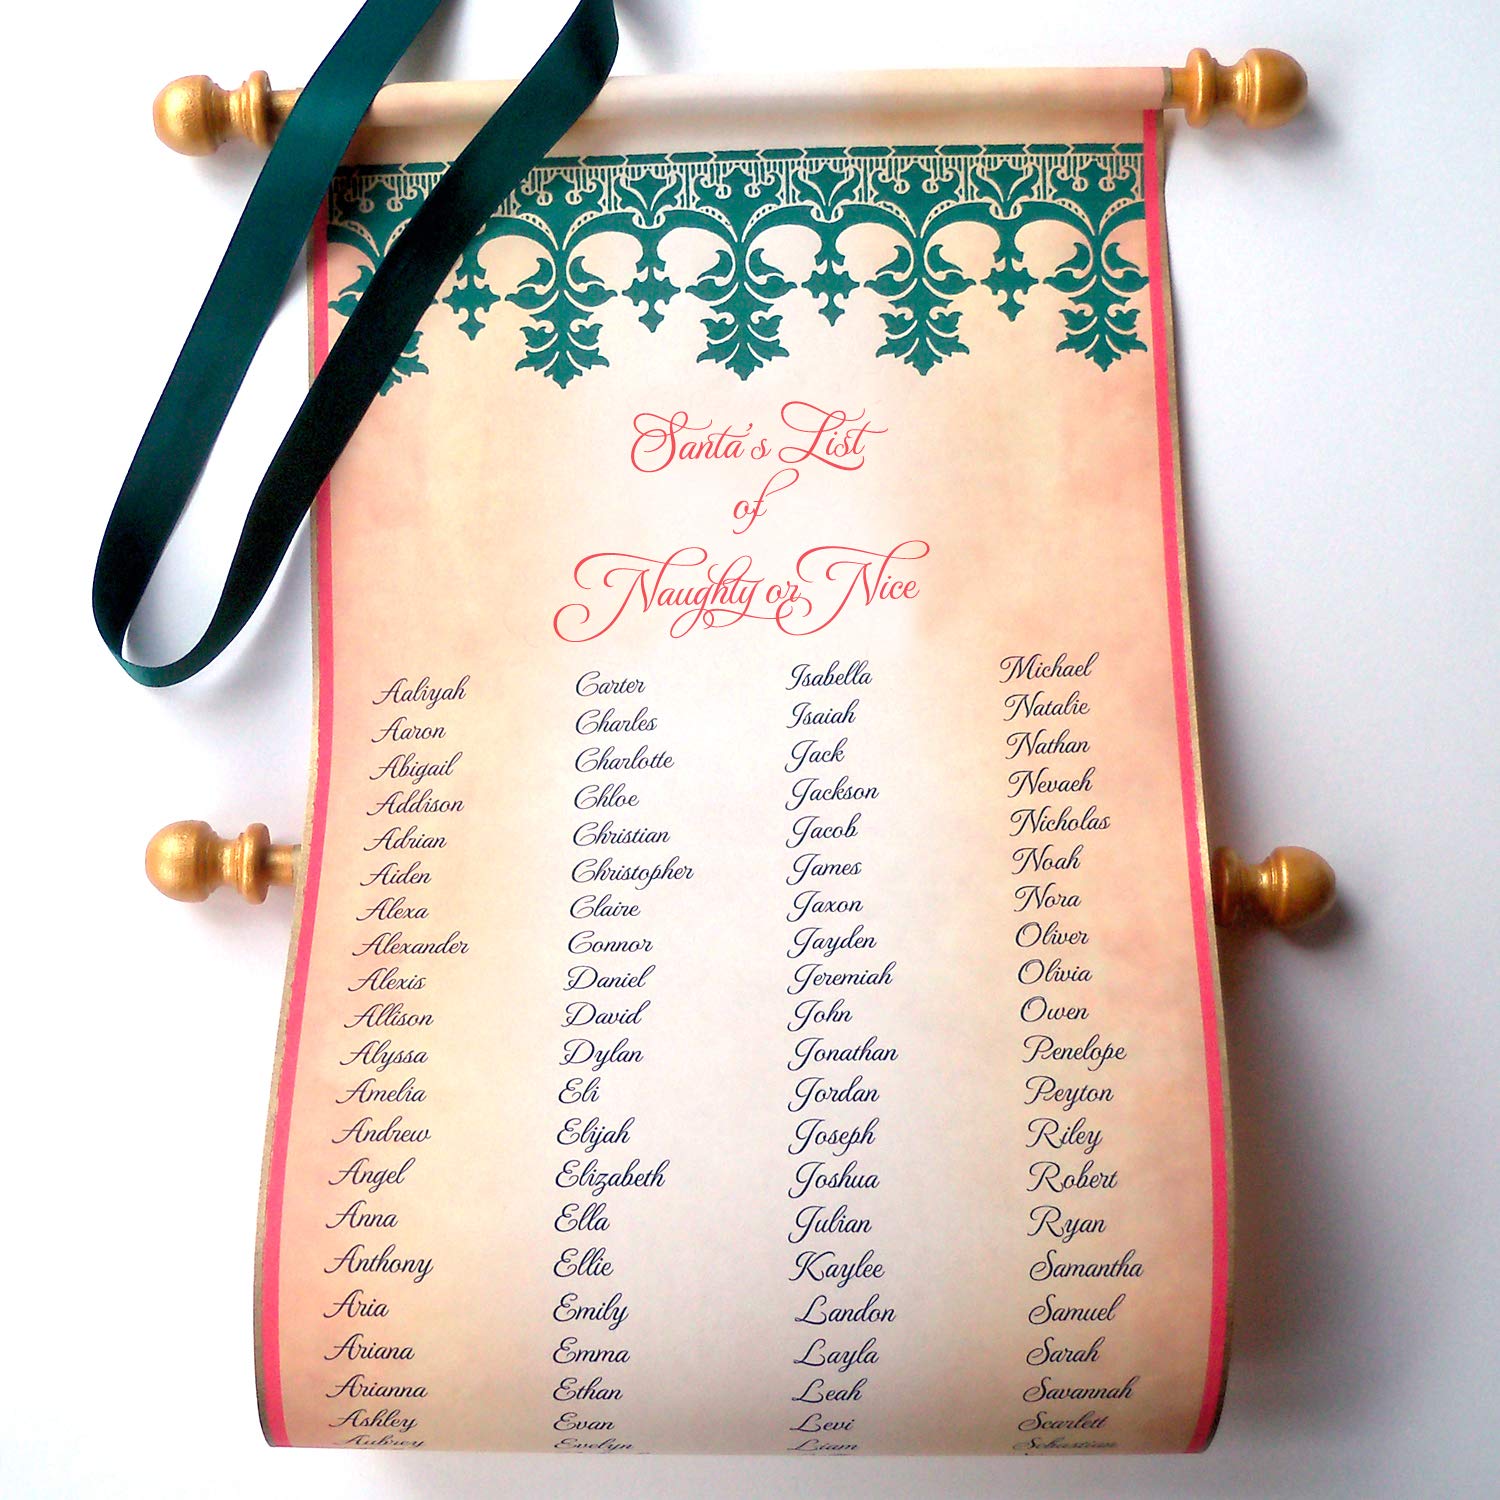 Santa's List
of
Naughty or Nice
Aaliyah
Aaron
Abigail
Addison
Adrian
Aiden
Alexa
Alexander
Alexis
Allison
Alyssa
Amelia
Andrew
Angel
Anna
Anthony
Aria
Ariana
Arianna
Ashley
Aubrey
Carter
Charles
Charlotte
Chloe
Christian
Christopher
Claire
Connor
Daniel
David
Dylan
Eli
Elijah
Elizabeth
Ella
Ellie
Emily
Emma
Ethan
Evan
Evelyn
Isabella
Isaiah
Jack
Jackson
Jacob
James
Jaxon
Jayden
Jeremiah
John
Jonathan
Jordan
Joseph
Joshua
Julian
Kaylee
Landon
Layla
Leah
Levi
Liam
Michael
Natalie
Nathan
Nevaeh
Nicholas
Noah
Nora
Oliver
Olivia
Owen
Penelope
Peyton
Riley
Robert
Ryan
Samantha
Samuel
Sarah
Savannah
Scarlett
Sebastian